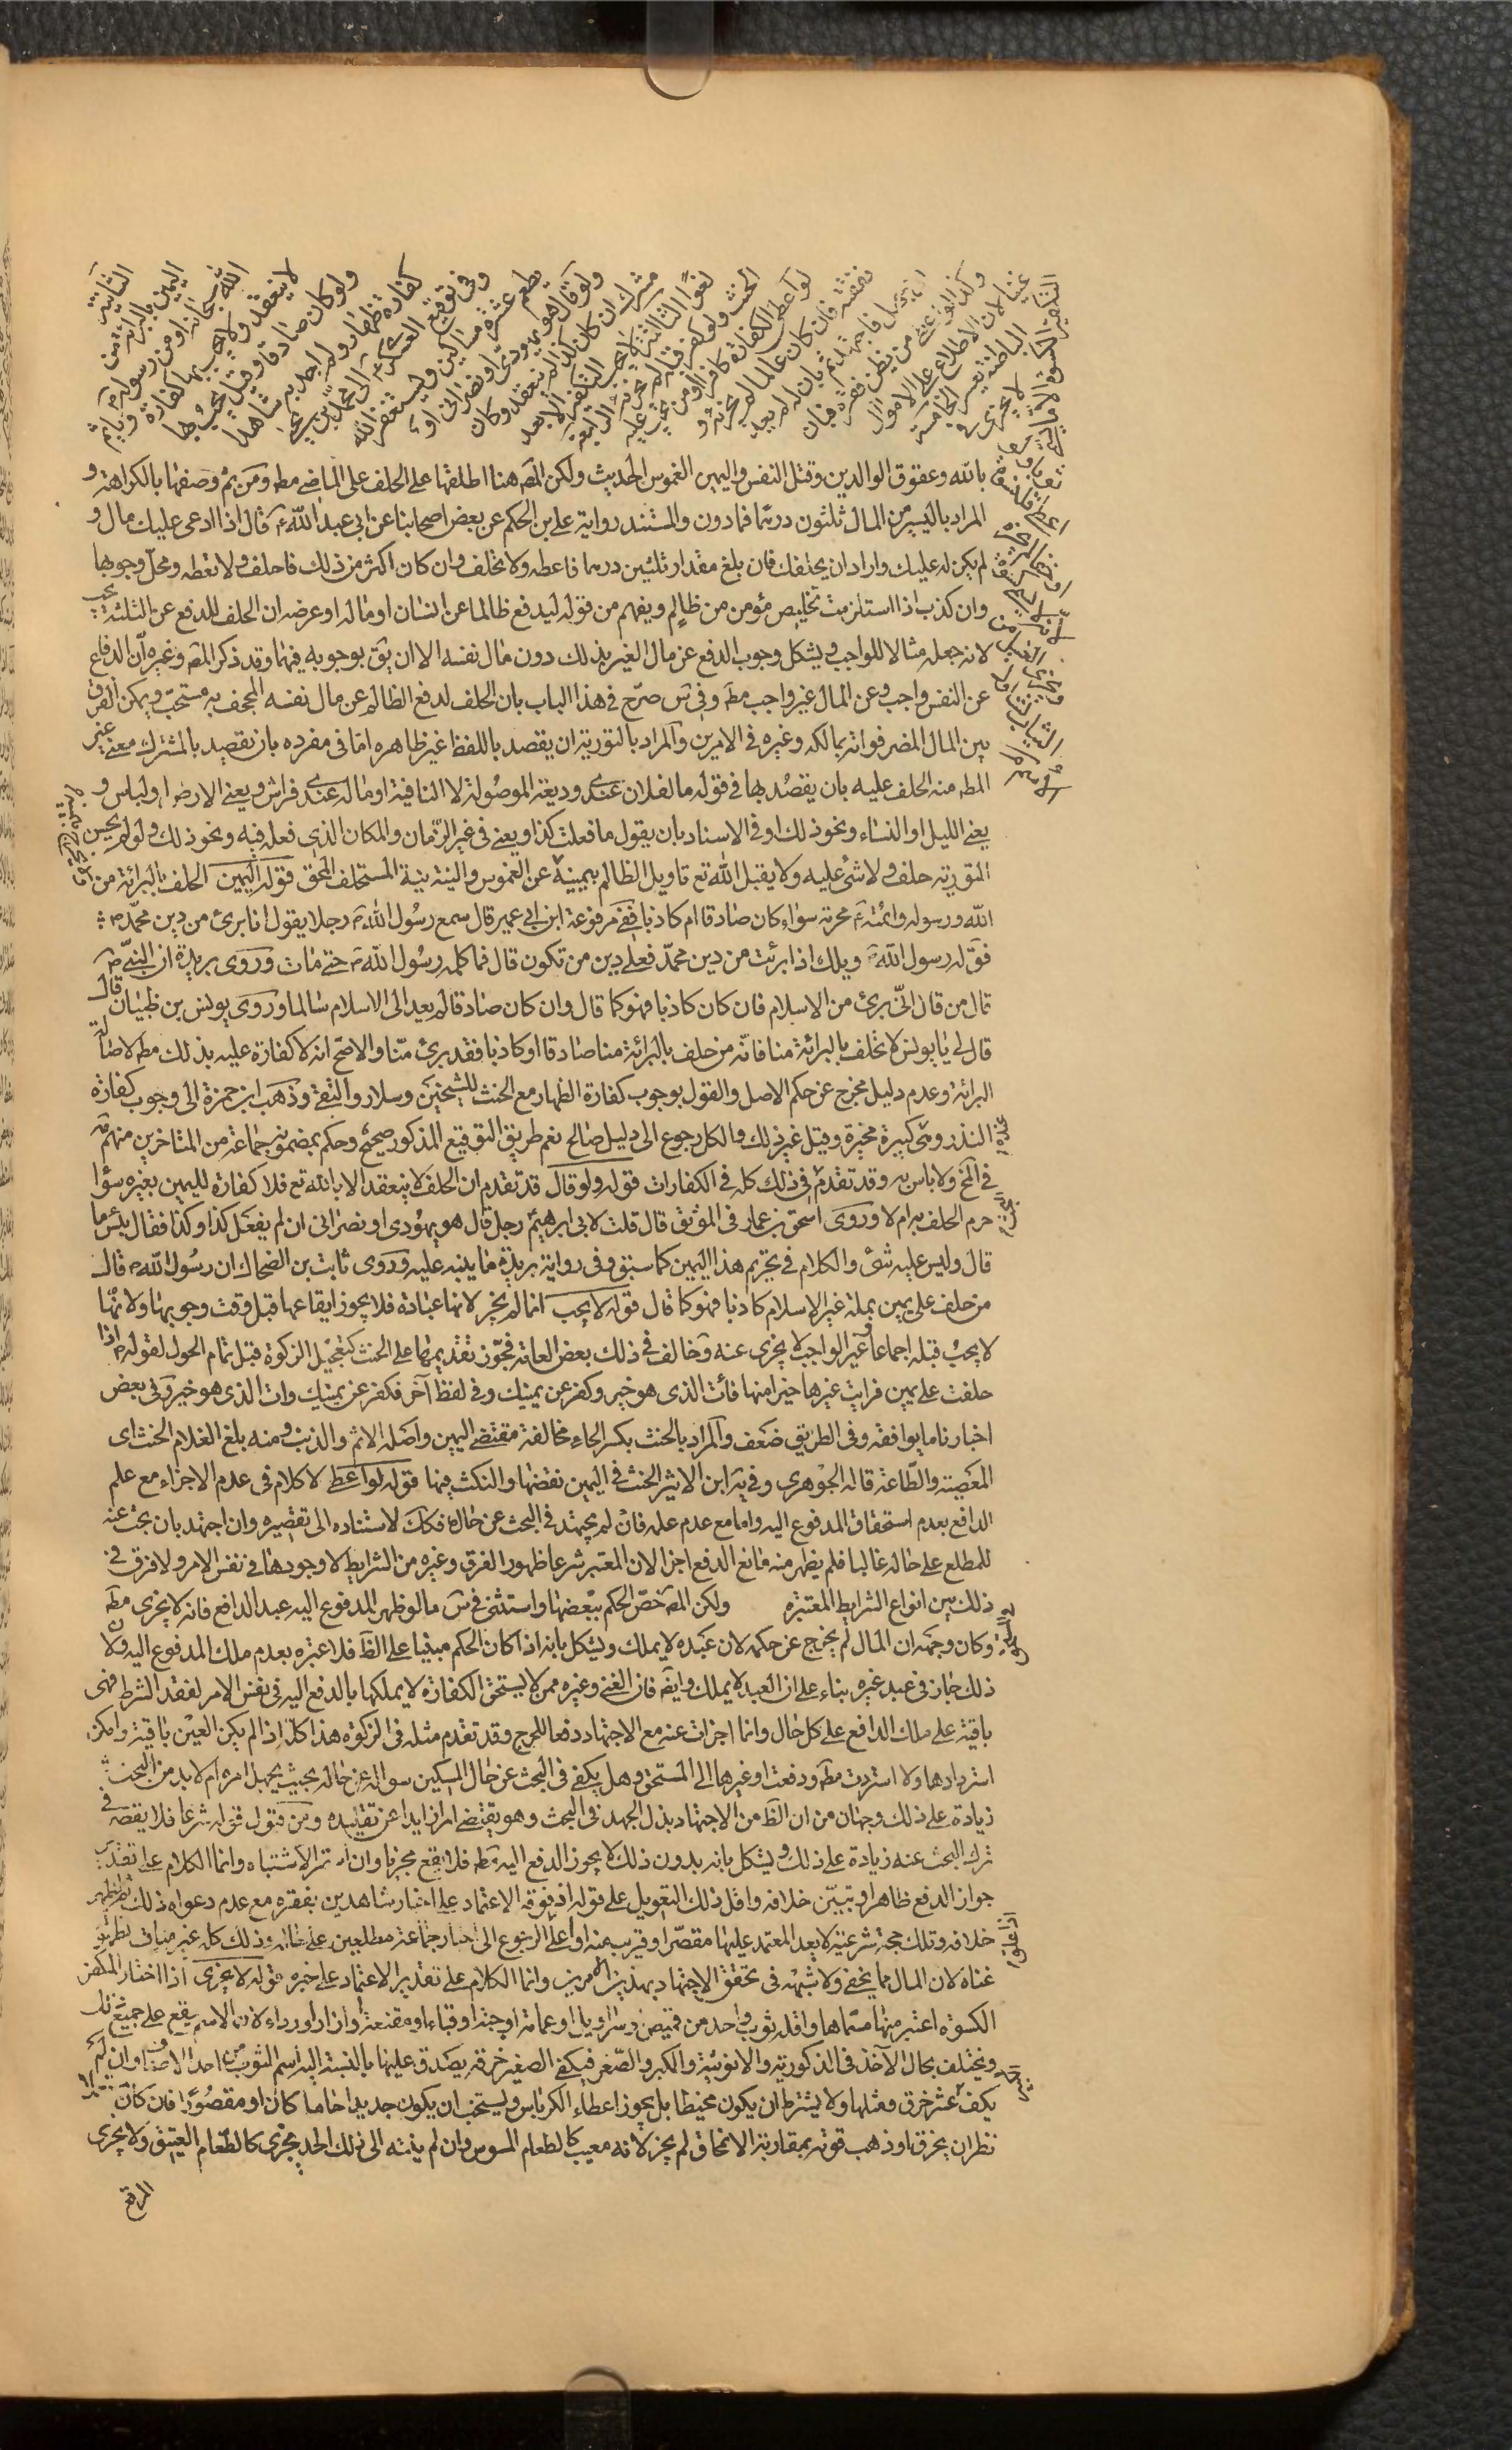 الثانية
اليمين بالبرائة من
الله سبحانه او من رسوله
لا ينعقد ولا يجب بها كفارة وياثم
ولو كان صادقا وقيل يجب بها
كفارة ظهار ولم اجد به شاهدا
وفى توقيع العسكرى الى محمد بن يحيى
يطعم عشرة مساكين ويستغفر الله
ولو قال هو يهودى او نصرانى او
مشرك ان كان كذا لم ينعقد وكان
لغوا الثالثة لا يجب التكفير الا بعد
الحنث ولو كفر قبله لم يجزئه الرابعة
لو اعطى الكفارة كافرا او من تجب عليه
نفقته فان كان عالما لم يجزئه و
ان جهل فاجتهد ثم بان له لم يعد
وكذا لو اعطى من يظن فقره فبان
غنيا لان الاطلاع على الاحوال
الباطنة يعسر الخامسة
لا يجزى فى
التكفير بالكسوة الا ما يسمى
ثوبا ولو
بالله وعقوق الوالدين وقتل النفس واليمين الغموس الحديث ولكن المص هنا اطلقها على الحلف على الماضى مط ومن ثم وصفها بالكراهة و
المراد باليسير من المال ثلثون درهما فما دون والمستند رواية على بن الحكم عن بعض اصحابنا عن ابى عبد الله ع قال اذا ادعى عليك مال و
لم يكن له عليك واراد ان يحلفك فان بلغ مقدار ثلثين درهما فاعطه ولا تحلف وان كان اكثر من ذلك فاحلف ولا تعطه ومحل وجوبها
وان كذب اذا استلزمت تخليص مؤمن من ظالم ويفهم من قوله ليدفع ظالما عن انسان او ماله او عرضه ان الحلف للدفع عن الثلثة يجب
لانه جعله مثالا للواجب ويشكل وجوب الدفع عن مال الغير بذلك دون مال نفسه الا ان يق بوجوبه فيهما وقد ذكر المص وغيره ان الدفاع
عن النفس واجب وعن المال غير واجب مط وفى س صرح فى هذا الباب بان الحلف لدفع الظالم عن مال نفسه المجحف به مستحب ويمكن الفرق
بين المال المضر فواته بمالكه وغيره فى الامرين والمراد بالتورية ان يقصد باللفظ غير ظاهره اما فى مفرده بان يقصد بالمشترك معنى غير
المط منه الحلف عليه بان يقصد بما فى قوله ما لفلان عندى وديعة الموصولة لا النافية او ما له عندى فراش ويعنى الارض او لباس و
يعنى الليل او النساء ونحو ذلك او فى الاسناد بان يقول ما فعلت كذا ويعنى فى غير الزمان والمكان الذى فعله فيه ونحو ذلك ولو لم يحسن
التورية حلف ولا شئ عليه ولا يقبل الله تع تاويل الظالم بيمينه عن الغموس والنية نية المستحلف المحق قوله اليمين الحلف بالبرائة من
الله ورسوله وائمته ع محرمة سواء كان صادقا ام كاذبا ففى مرفوعة ابن ابى عمير قال سمع رسول الله ص رجلا يقول انا برئ من دين محمد ص
فق له رسول الله ص ويلك اذا برئت من دين محمد فعلى دين من تكون قال فما كلمه رسول الله ص حتى مات وروى بريدة ان النبى ص
قال من قال انى برئ من الاسلام فان كان كاذبا فهو كما قال وان كان صادقا لم يعد الى الاسلام سالما وروى يونس بن ظبيان قال
قال لى يا يونس لا تحلف بالبرائة منا فانه من حلف بالبرائة منا صادقا او كاذبا فقد برئ منا والاصح انه لا كفارة عليه بذلك مط لاصالة
البرائة وعدم دليل مخرج عن حكم الاصل والقول بوجوب كفارة الظهار مع الحنث للشيخين وسلار والتقى وذهب ابن حمزة الى وجوب كفارة
النذر وهى كبيرة مخيرة وقيل غير ذلك والكل رجوع الى دليل صالح نعم طريق التوقيع المذكور صحيح وحكم بمضمونه جماعة من المتاخرين منهم مة
فى المخ ولا باس به وقد تقدم فى ذلك كله فى الكفارات قوله ولو قال قد تقدم ان الحلف لا ينعقد الا بالله تع فلا كفارة لليمين بغيره سواء
حرم الحلف به ام لا وروى اسحق بن عمار فى الموثق قال قلت لابى ابرهيم رجل قال هو يهودى او نصرانى ان لم يفعل كذا وكذا فقال بئس ما
قال وليس عليه شئ والكلام فى تحريم هذا اليمين كما سبق وفى رواية بريدة ما ينبه عليه وروى ثابت بن الضحاك ان رسول الله ص قال
من حلف على يمين بملة غير الاسلام كاذبا فهو كما قال قوله لا يجب انما لم يجز لانها عبادة فلا يجوز ايقاعها قبل وقت وجوبها ولانها
لا يجب قبله اجماعا وغير الواجب لا يجزى عنه وخالف فى ذلك بعض العامة فجوز تقديمها على الحنث كتعجيل الزكوة قبل تمام الحول لقوله ص اذا
حلفت على يمين فرايت غيرها خيرا منها فائت الذى هو خير وكفر عن يمينك وفى لفظ آخر فكفر عن يمينك وات الذى هو خير وفى بعض
اخبارنا ما يوافقه وفى الطريق ضعف والمراد بالحنث بكسر الحاء مخالفة مقتضى اليمين واصله الاثم والذنب ومنه بلغ الغلام الحنث اى
المعصية والطاعة قاله الجوهرى وفى ية ابن الاثير الحنث فى اليمين نقضها والنكث فيها قوله لو اعطى لا كلام فى عدم الاجزاء مع علم
الدافع بعدم استحقاق المدفوع اليه واما مع عدم علمه فان لم يجتهد فى البحث عن حاله فكك لاستناده الى تقصيره وان اجتهد بان بحث عنه
للمطلع على حاله غالبا فلم يظهر منه مانع الدفع اجزا لان المعتبر شرعا ظهور الفرق وغيره من الشرايط لا وجودها فى نفس الامر ولا فرق فى
ذلك بين انواع الشرايط المعتبره ولكن المص خص الحكم ببعضها واستثنى فى س ما لو ظهر المدفوع اليه عبد الدافع فانه لا يجزى مط
وكان وجهه ان المال لم يخرج عن حكمه لان عبده لا يملك ويشكل بانه اذا كان الحكم مبنيا على الظ فلا عبره بعدم ملك المدفوع اليه ولان
ذلك جاز فى عبد غيره بناء على ان العبد لا يملك وايضا فان الغنى وغيره ممن لا يستحق الكفارة لا يملكها بالدفع اليه فى نفس الامر لفقد الشرط فهى
باقية على ملك الدافع على كل حال وانما اجزات عنه مع الاجتهاد دفعا للحرج وقد تقدم مثله فى الزكوة هذا كله اذا لم يكن العين باقية وامكن
استردادها والا استردت مط ودفعت او غيرها الى المستحق وهل يكفى فى البحث عن حال المسكين سواله عن حاله بحيث يجهل امره ام لا بد من البحث
زيادة على ذلك وجهان من ان الظ من الاجتهاد بذل الجهد فى البحث وهو يقتضى امرا زايدا عن تقليده ومن قبول قوله شرعا فلا يقصر فى
ترك البحث عنه زيادة على ذلك ويشكل بانه بدون ذلك لا يجوز الدفع اليه مط فلا يقع مجزيا وان استمر الاشتباه وانما الكلام على تقدير
جواز الدفع ظاهرا وتبين خلافه واقل ذلك التعويل على قوله اذ فوقه الاعتماد على اخبار شاهدين بفقره مع عدم دعواه ذلك ثم يظهر
خلافه وتلك حجة شرعية لا يعد المعتمد عليها مقصرا وقريب منه او اعلى الرجوع الى اخبار جماعة مطلعين على حاله وذلك كله غير مناف لطريق
غناه لان المال مما يخفى ولا شبهة فى تحقق الاجتهاد بهذين الامرين وانما الكلام على تقدير الاعتماد على خبره قوله لا يجزى اذا اختار المكفر
الكسوة اعتبر منها مسماها واقله ثوب واحد من قميص وسراويل او عمامة او جبة او قباء او مقنعة او ازار او رداء لان الاسم يقع على جميع ذلك
ويختلف بحال الآخذ فى الذكورية والانوثية والكبر والصغر فيكفى الصغير خرقة يصدق عليها بالنسبة اليه اسم الثوب من احد الاصناف وان لم
يكف عشر خرق ومثلها ولا يشترط ان يكون مخيطا بل يجوز اعطاء الكرباس ويستحب ان يكون جديدا خاما كان او مقصورا فان كان
نظر ان يخرق او ذهب قوته بمقاربة الانمحاق لم يجز لانه معيب كالطعام المسوس وان لم ينته الى ذلك الحد مجزى كالطعام العتيق ولا يجزى
المرقع